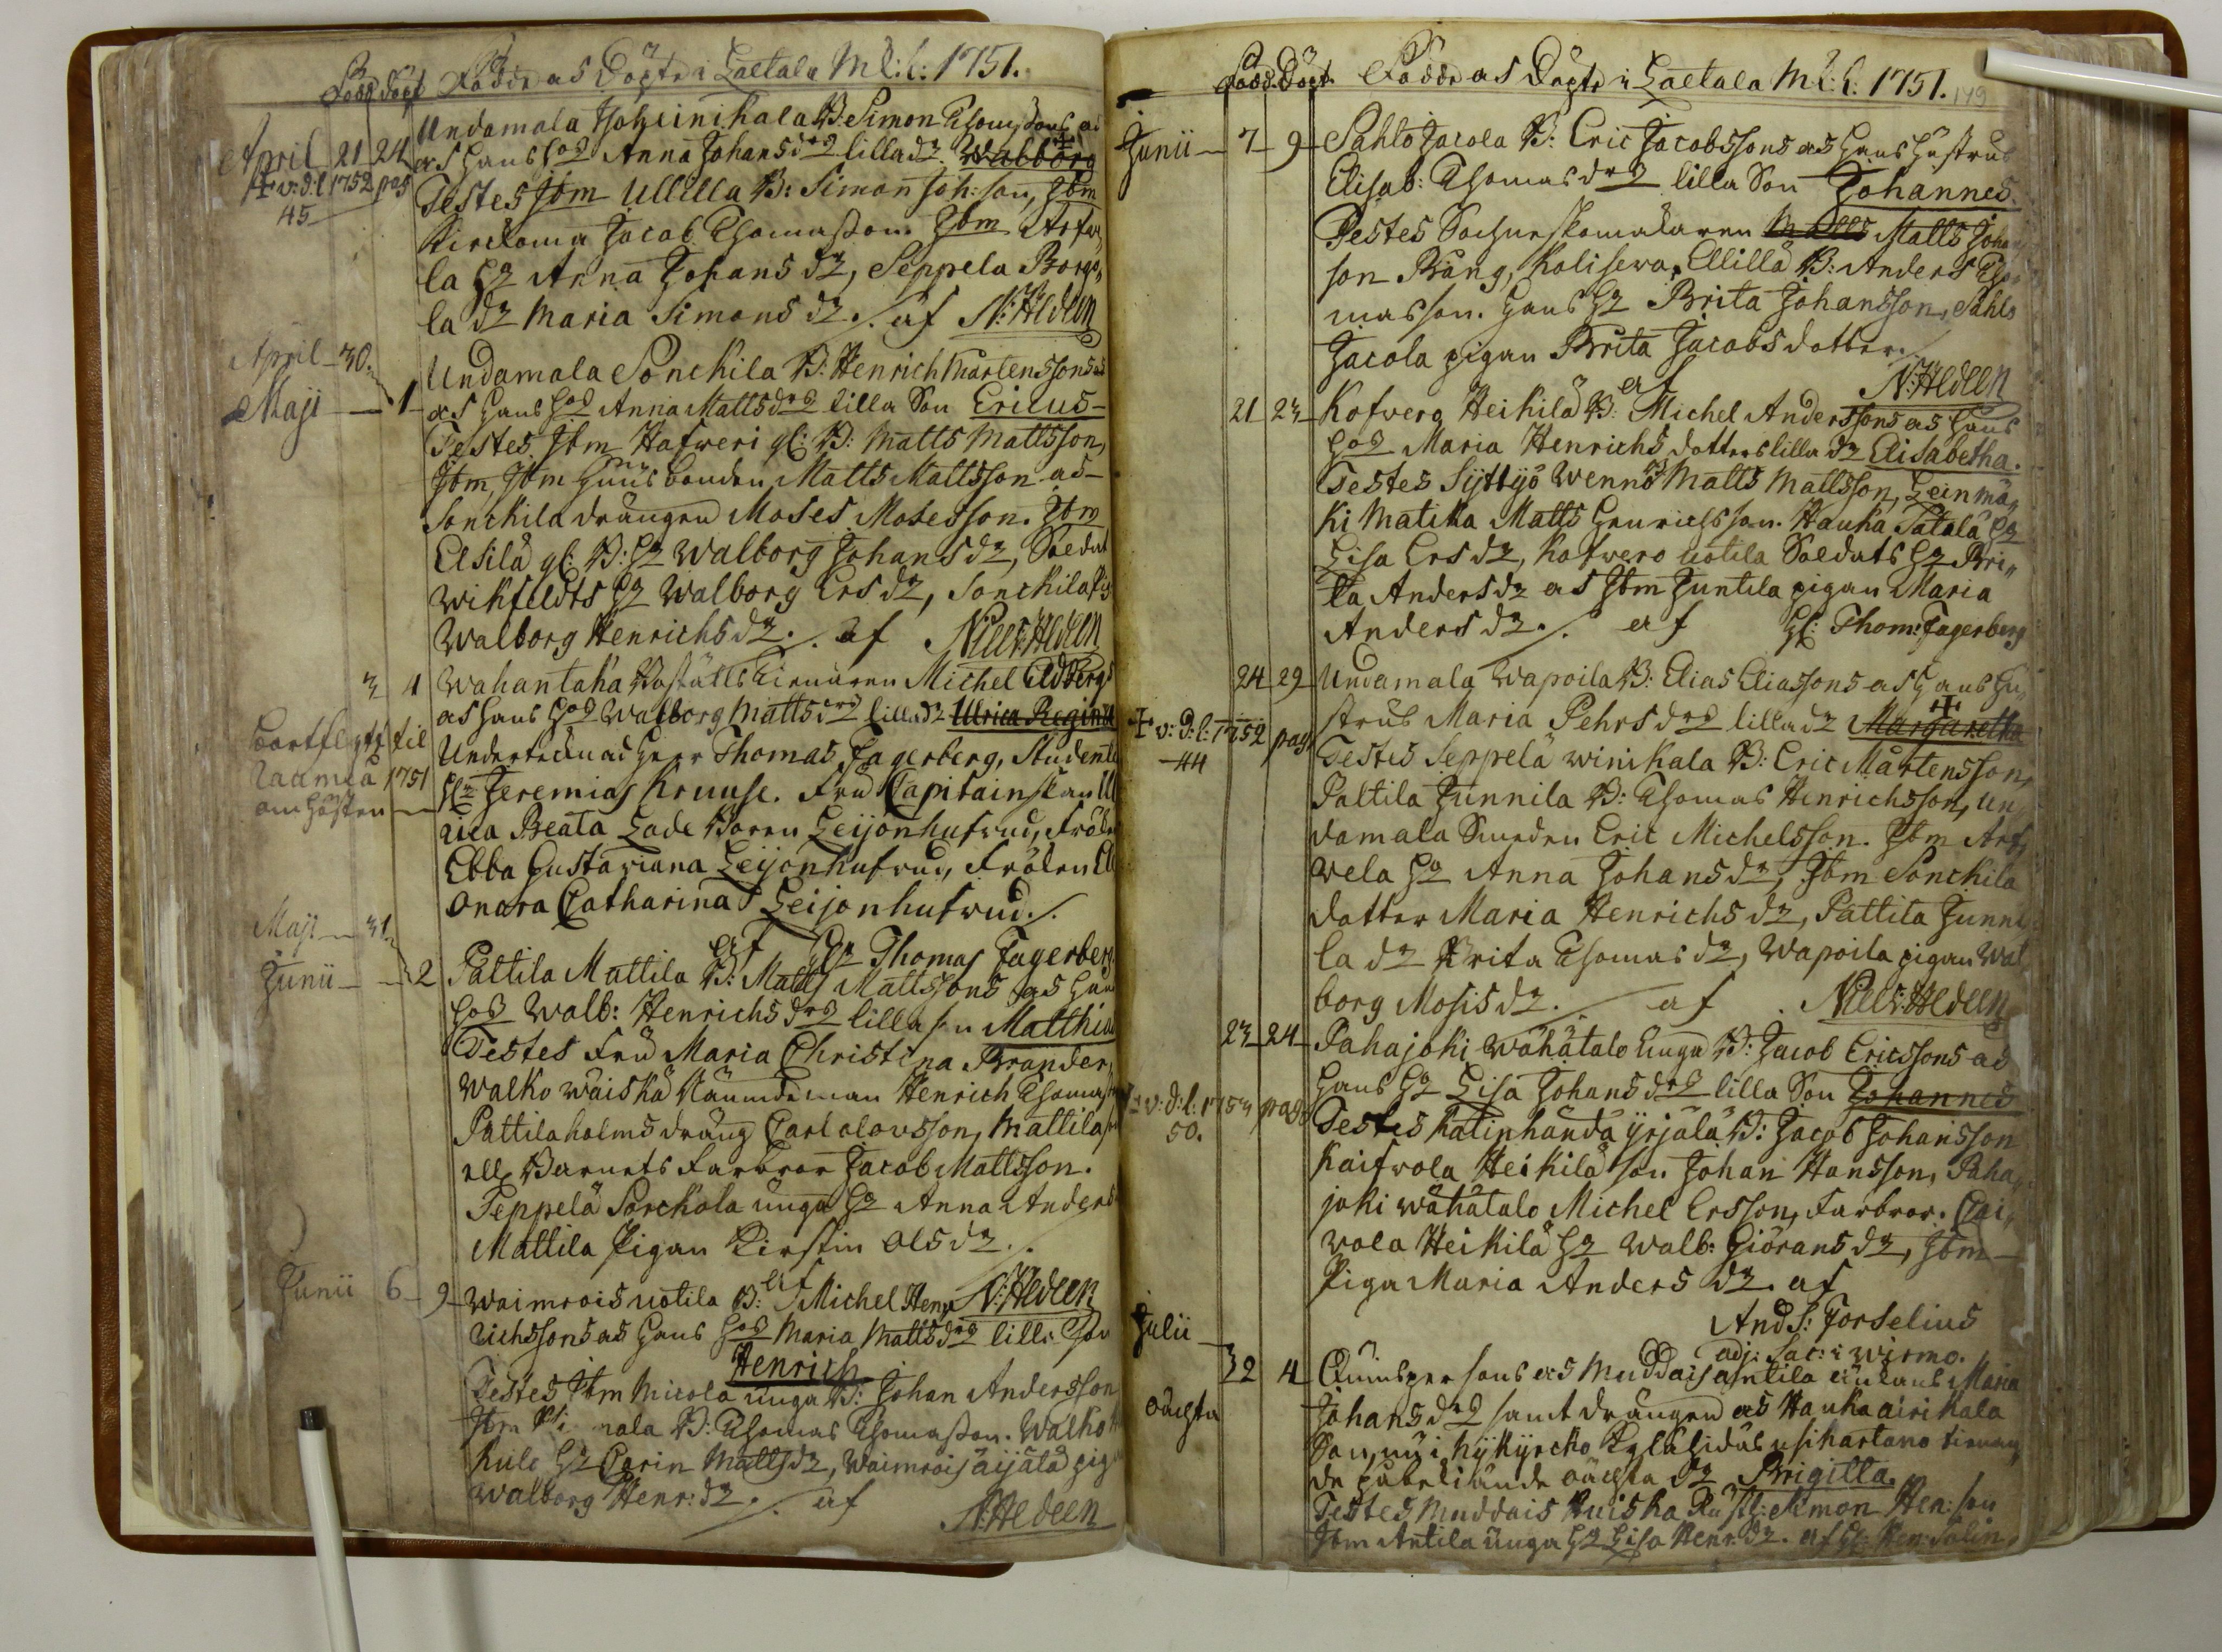 Född Döpt Födde as Döpte i Laetala M k: l: 1751.
April 21 24 Undamala Hoheinikala B: Simon Thomssons
as Hans Hos Anna Johansdrs lilla dr Walborg
+ v: d: l. 1752 pag 45
Testes Ibm Ullilla B: Simon Joh: son, Ibm
Jacob Thomasson. Ibm Arfwe,,
la Ha Anna Johans dr, Seppela Borge,,
la dr Maria Simons dr ./. af N: Hedeen
April 30.
Maji 1 Undamala Sonckila B: Henrich Mårtenssons
as Hans Hos Anna Mattsdrs lilla Son Ericus
Testes Ibm Hafweri gl: B: Matts Mattsson,
Ibm, Ibm Huusbonden Matts Mattsson as
Sonckila drängen Moses Mosesson. Ibm
Elsilä gl: B: Ha Walborg Johans dr, Soldat
Wikfeldts Ha Walborg Ers dr, Sonckila
Walborg Henrichs dr ./. af Niels: Hedeen
3 4 Wahantaka Michel Eldbergs
as Hans Hos Walborg Mattsdrs lilla dr Ulrica Regina
til Raumå 1751 om hösten
Undertecknad Herr Thomas Fagerberg, Studenten
Hr Jeremias Kruuse. Fru Capitainskan Ul
rica Beata Lade Leijonhufwud, Frölen
Ebba Gustaviana Leijonhufwud, Frölen El
onora Catharina Leijonhufwud ./.
af Hr Thomas Fagerberg
Maji 31.
Junii 2 Pättila Mattila B: Matts Mattssons as Hans
Hos Walb: Henrichs drs lilla son Matthias
Testes Fru Maria Christina Brander,
Walko Wäiskä Nämndeman Henrich Thomas
Pättilaholms dräng Carl olovsson, Mattila
Barnets Farbror Jacob Mattsson.
Seppelä Sorckola unga Ha Anna Anders
Mattila Pigan Kirstin Ols dr ./.
af N: Hedeen
Junii 6 9 Waimrois uotila B: Michel Hen,,
richssons as Hans Hos Maria Mattsdrs lilla Son
Henrich
Testes Ibm Nicola unga B: Johan Andersson
Ibm nala B: Thomas Thomasson. Walko
kulo Ha Carin Matts dr, Waimrois äijälä pigan
Walborg Henr: dr ./. af
N: Hedeen
Född. Döpt. Födde as Döpte i Laetala M k: l: 1751. 149
Junii 7 9 Sahlo Jacola B: Eric Jacobssons as Hans Hustrus
Elisab: Thomas drs lilla Son Johannes.
Testes Sochneskomakaren Matts Matts Johan
son Bång, Kolisewa, Ellilla B: Anders Tho,,
masson. Hans Ha Brita Johansson, Sahlo
Jacola pigan Brita Jacobsdotter.
af N: Hedeen
21 23 Kofwero Heikilä B: Michel Anderssons as Hans
Hos Maria Henrichs dotters lilla dr Elisabetha.
Testes Syttyö Wenno Matts Mattsson, Leinmä,,
ki Matika Matts Henrichsson. Hauka Satala Ha
Lisa Ers dr, Kofwero uotila Soldats Ha Bri,,
ta Anders dr as Ibm Juntila pigan Maria
Anders dr ./. af Hl: Thom: Fagerberg
24 29 Undamala Wapoila B: Elias Eliassons as Hans Hu
strus Maria Pehrs drs lilla dr Margaretha
+ v: d: l: 1752 pag 44
Testes Seppelä winikala B: Eric Mårtensson,
Paltila Junnila B: Thomas Henrichsson, Un,,
damala Smeden Eric Michelsson. Ibm Arf,,
wela Ha Anna Johans dr, Ibm Sonckila
dotter Maria Henrichs dr, Pättila Junni
la dr Brita Thomas dr, Wapoila pigan Wal
borg Mosis dr ./. af Niels: Hedeen
23 24 Pahajoki wähätalo unga B: Jacob Ericssons as
Hans Ha Lisa Johans drs lilla Son Johannes
+ v: d: l: 1753 pag 50.
Testes Katinhändä yrjälä B: Jacob Johansson
Kaifwola Heikilä son Johan Hansson, Paha,,
joki wähätalo Michel Ersson, Farbror. Cai,,
wola Heikilä Ha Walb: Giörans dr, Ibm
Piga Maria Anders dr af
And. S: Forselius
adj: Sac: i Wirmo.
Julii 32 4 Muddais antila Maria
oächta
Johans drs samt drängen as Hauka airikala
Son, nu i Nykyrcko
oächta dr Brigitta.
Testes Muddais Huiska Simon Hen: son
Ibm Antila unga Ha Lisa Henr: dr. af Hl: Hen: Salin